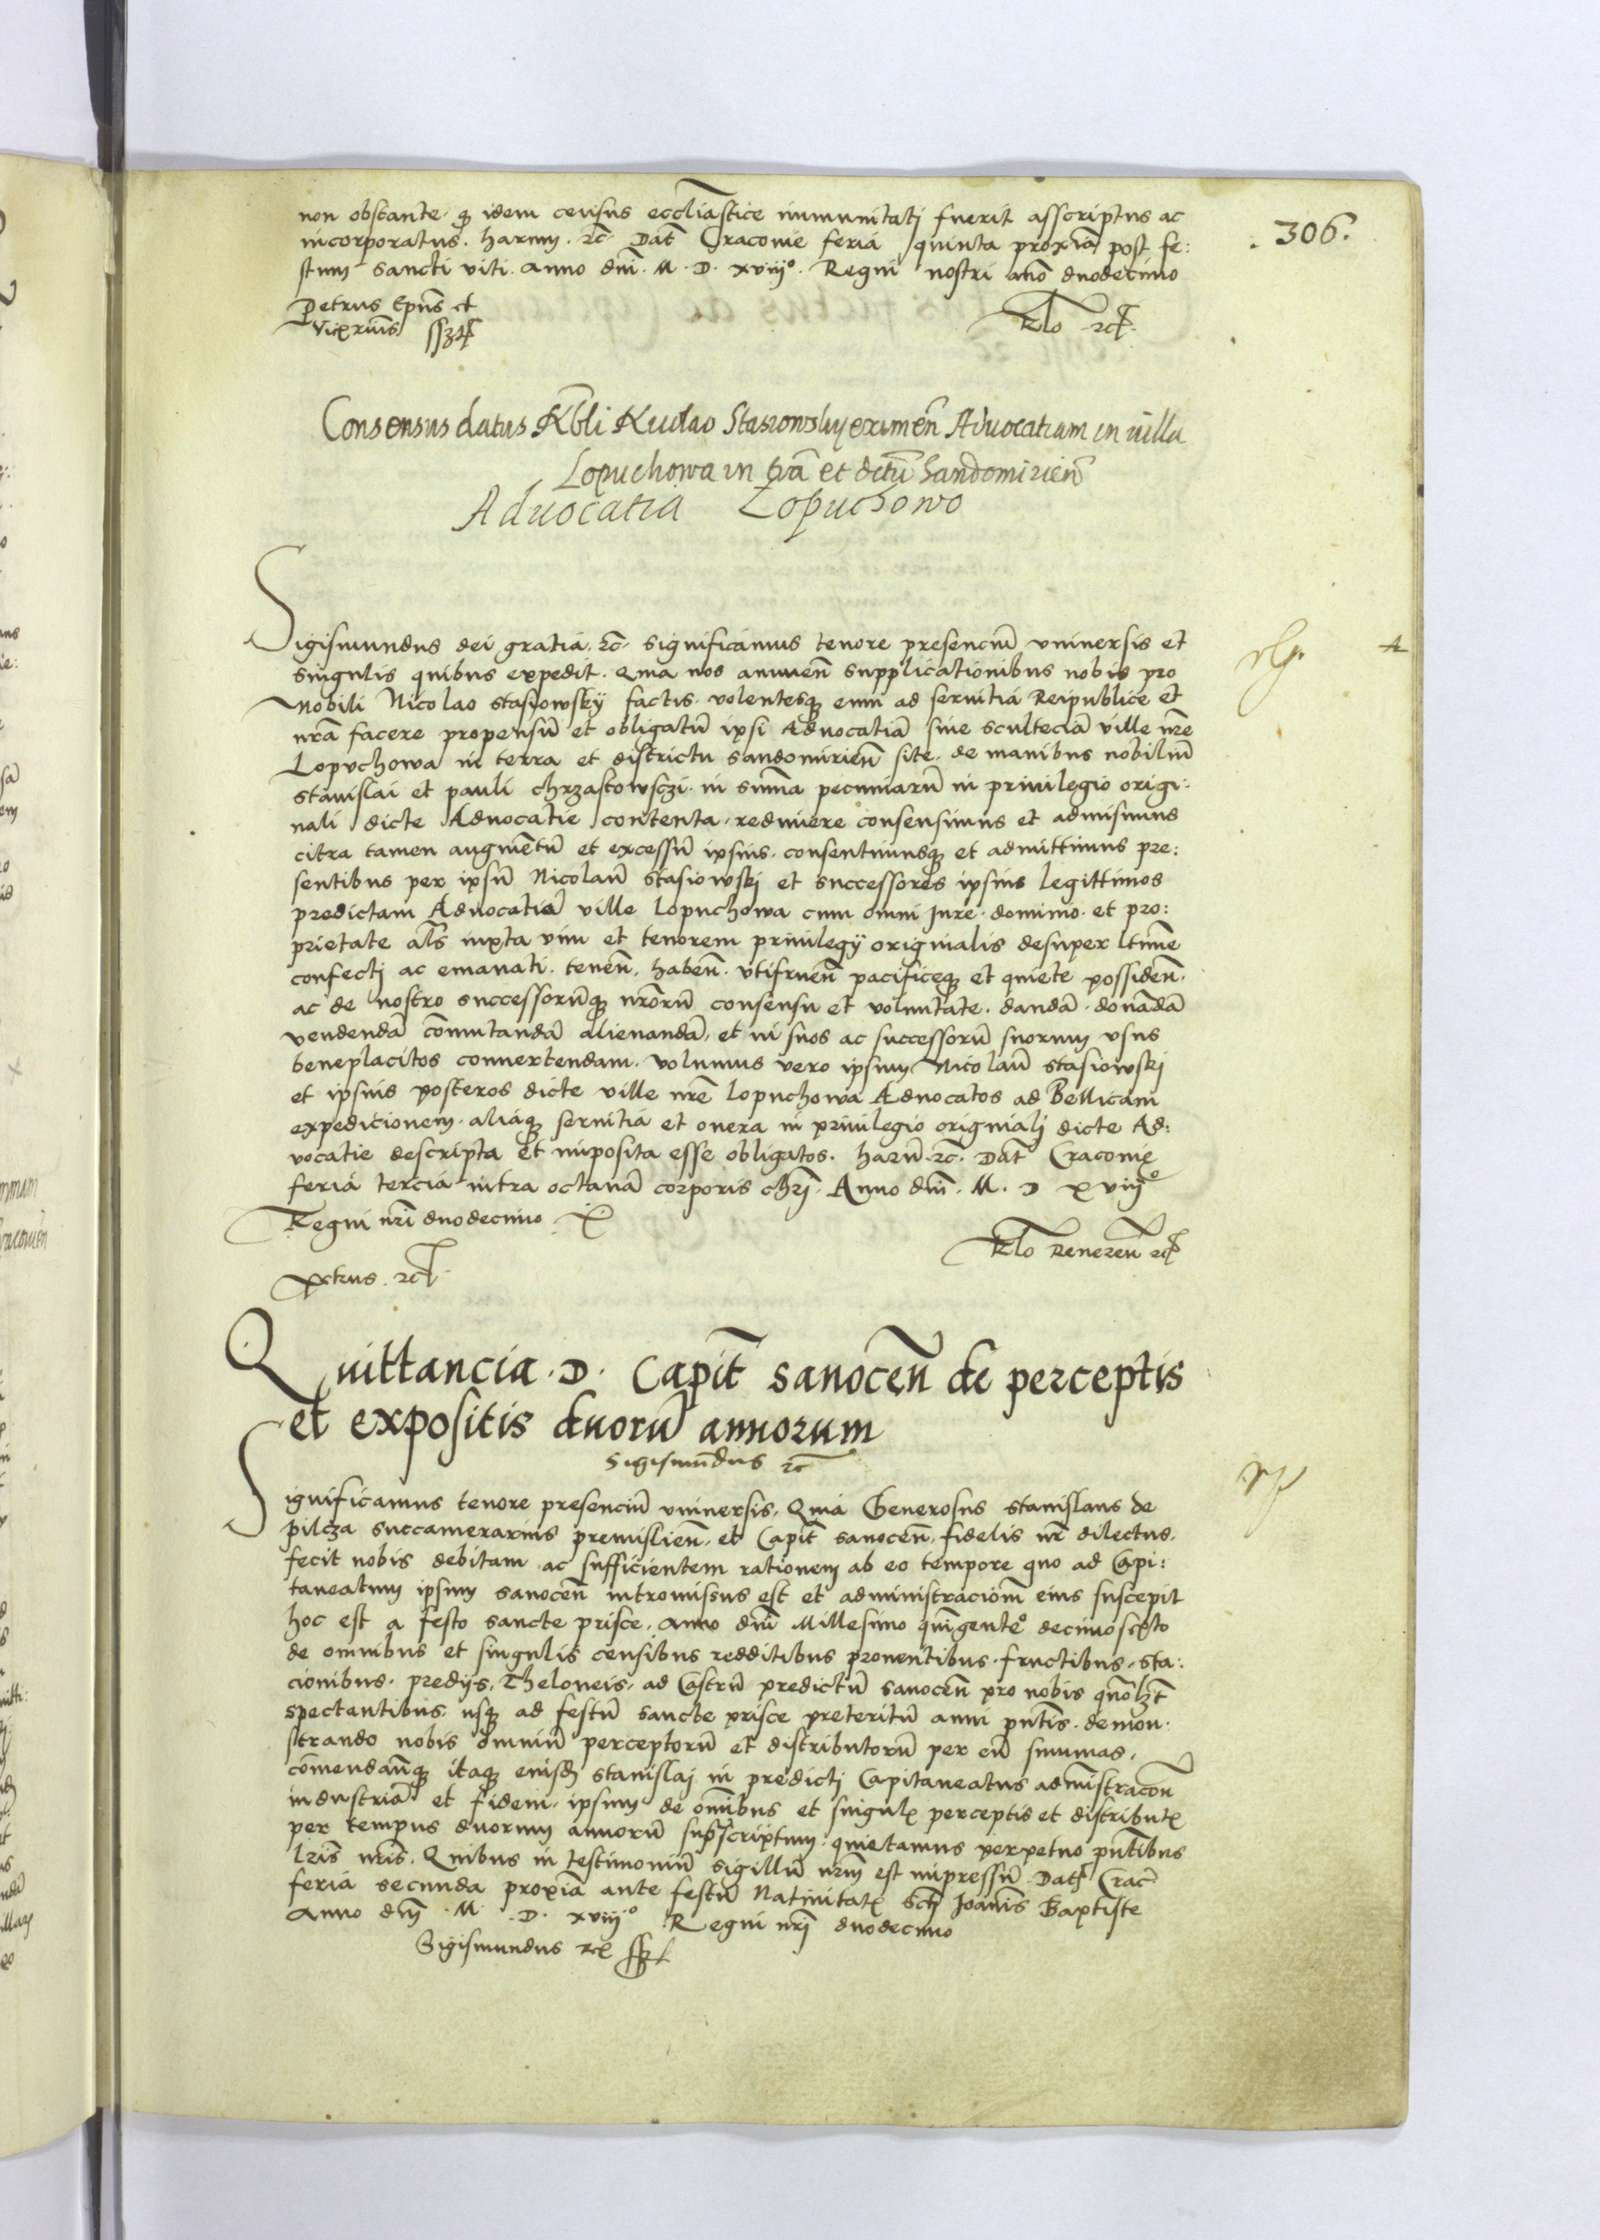 non obstante q idem census eccliastice immunitatj fuerit asscriptus ac
incorporatus. harum. rc. Dat Cracovie feria quinta proxia post fe:
306.
stum sancti viti. Anno dni. M. D. xviijº. Regni nostri ano duodecimo
Petrus Epus et
Vicarius sszt
Rlo rc.
Consensus datus Nobli Nicolao Stasiowsky eximen Advocatiam in villa
Lopuchowa in tra et dctu Sandomirien
Advocatia Lopuchowo
Sigismundus dei gratia. rc. significamus tenore presenciu universis et
singulis quibus expedit. Quia nos annuen supplicationibus nobis pro
Nobili Nicolao stasiowskij factis. volentesq eum ad servitia Reipublice et
nra facere propensu et obligatu ipsi Advocatia sive scultecia ville nre
Lopuchowa in terra et districtu sandomirien site. de manibus nobiliu
stanislai et pauli chrzastowsczi. in summa pecuniaru in privilegio origi:
nali dicte Advocatie contenta. redimere consensimus et admisimus
citra tamen augmetu et excessu ipsius. consentimusq et admittimus pre:
sentibus per ipsu Nicolau stasiowskj et successores ipsius legittimos
predictam Advocatia ville Lopuchowa cum omni Jure. dominio. et pro:
prietate als iuxta vim et tenorem privilegij originalis desuper ltime
confectj ac emanati. tenen. haben. vtifruen pacificeq et quiete possiden.
ac de nostro successoruq nroru consensu et voluntate. danda. donada
vendenda comutanda alienanda. et in suos ac successoru suorum vsus
beneplacitos convertendam. volumus vero ipsum Nicolau stasiowskj
et ipsius posteros dicte ville nre Lopuchowa Advocatos ad Bellicam
expedicionem. aliaq servitia et onera in privilegio originalj dicte Ad:
vocatie descripta et imposita esse obligatos. haru. rc. Dat Cracovie
feria tercia intra octava corporis chrj. Anno dni. M. D xviijº
Regni nri duodecimo
Rlo Reveren rc
petrus. rc.
Quittancia. D. Capit sanocen de perceptis
et expositis duoru annorum
Sigismudus rc
Significamus tenore presenciu universis. Quia Generosus stanislaus de
pilcza succamerarius premislien. et Capit sanocen. fidelis nr dilectus.
fecit nobis debitam ac sufficientem rationem ab eo tempore quo ad Capi:
taneatum ipsum sanocen intromissus est et administraciom eius suscepit
hoc est a festo sancte prisce. Anno dni Millesimo quigenteº decimosexto
de omnibus et singulis censibus redditibus proventibus. fructibus. sta:
cionibus. predijs. Theloneis. ad Castru predictu sanocen pro nobis quolzt
spectantibus. usq ad festu sancte prisce preteritu anni pntis. demon:
strando nobis omniu perceptoru et distributoru per eu summas.
comendauq itaq eiusd stanislaj in predictj Capitaneatus admistracon
industria et fidem. ipsum de omibus et singul perceptis et distribut
per tempus duorum annoru suprascriptum quietamus perpetuo pntibus
lris nris. Quibus in testimoniu sigillu nrm est impressu Dat Crac
feria secunda proxia ante festu Nativitat scti Joanis Baptiste
Anno dni. M. D. xviijº Regni nrj duodecimo
Sigismundus rex sszt